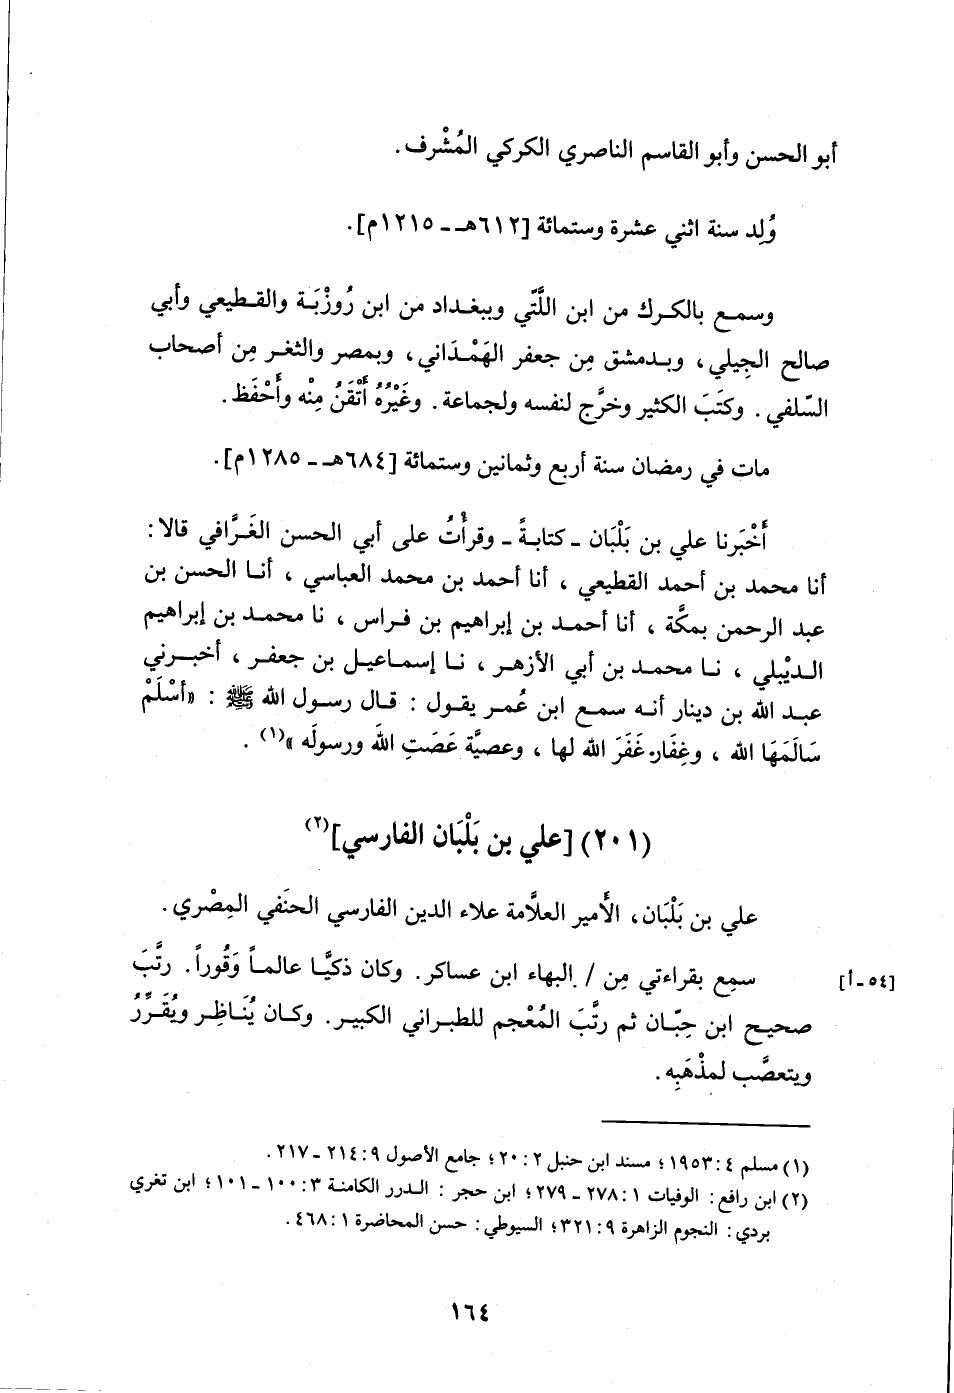 أبو الحسن وأبو القاسم الناصري الكركي المُشْرف.
وُلِد سنة اثني عشرة وستمائة [٦١٢هـ ـ ١٢١٥م].
وسمع بالكرك من ابن اللَّتّي وببغداد من ابن رُوزْبَة والقطيعي وأبي
صالح الجِيلي، وبدمشق مِن جعفر الهَمْدَاني، وبمصر والثغر مِن أصحاب
السّلفي. وكتَبَ الكثير وخرَّج لنفسه ولجماعة. وغَيْرُهُ أَتْقَنُ مِنْه وأَحْفَظ.
مات في رمضان سنة أربع وثمانين وستمائة [٦٨٤هـ ـ ١٢٨٥م].
أَخْبَرنا علي بن بَلْبَان ـ كتابةً ـ وقرأْتُ على أبي الحسن الغَرَّافي قالا:
أنا محمد بن أحمد القطيعي، أنا أحمد بن محمد العباسي، أنا الحسن بن
عبد الرحمن بمكَّة، أنا أحمد بن إبراهيم بن فراس، نا محمد بن إبراهيم
الديْبلي، نا محمد بن أبي الأزهر، نا إسماعيل بن جعفر، أخبرني
عبد الله بن دينار أنه سمع ابن عُمر يقول: قال رسول الله ﷺ: «أسْلَمْ
سَالَمَهَا الله، وغِفَار غَفَرَ الله لها، وعصيَّة عَصَتِ الله ورسولَه»(١).
(٢٠١) [علي بن بَلْبَان الفارسي](٢)
علي بن بَلْبَان، الأَمير العلاَّمة علاء الدين الفارسي الحنَفي المِصْري.
سمِع بقراءتي مِن / البهاء ابن عساكر. وكان ذكيًّا عالماً وَقُوراً. رتَّبَ [٥٤ـأ]
صحيح ابن حِبّان ثم رتَّبَ المُعْجم للطبراني الكبير. وكان يُنَاظِر ويُقَرِّرُ
ويتعصَّب لمذْهَبِه.
(١) مسلم ٤: ١٩٥٣؛ مسند ابن حنبل ٢: ٢٠؛ جامع الأصول ٩: ٢١٤ ـ ٢١٧.
(٢) ابن رافع: الوفيات ١: ٢٧٨ ـ ٢٧٩؛ ابن حجر: الدرر الكامنة ٣: ١٠٠ ـ ١٠١؛ ابن تغري
بردي: النجوم الزاهرة ٩: ٣٢١؛ السيوطي: حسن المحاضرة ١: ٤٦٨.
١٦٤